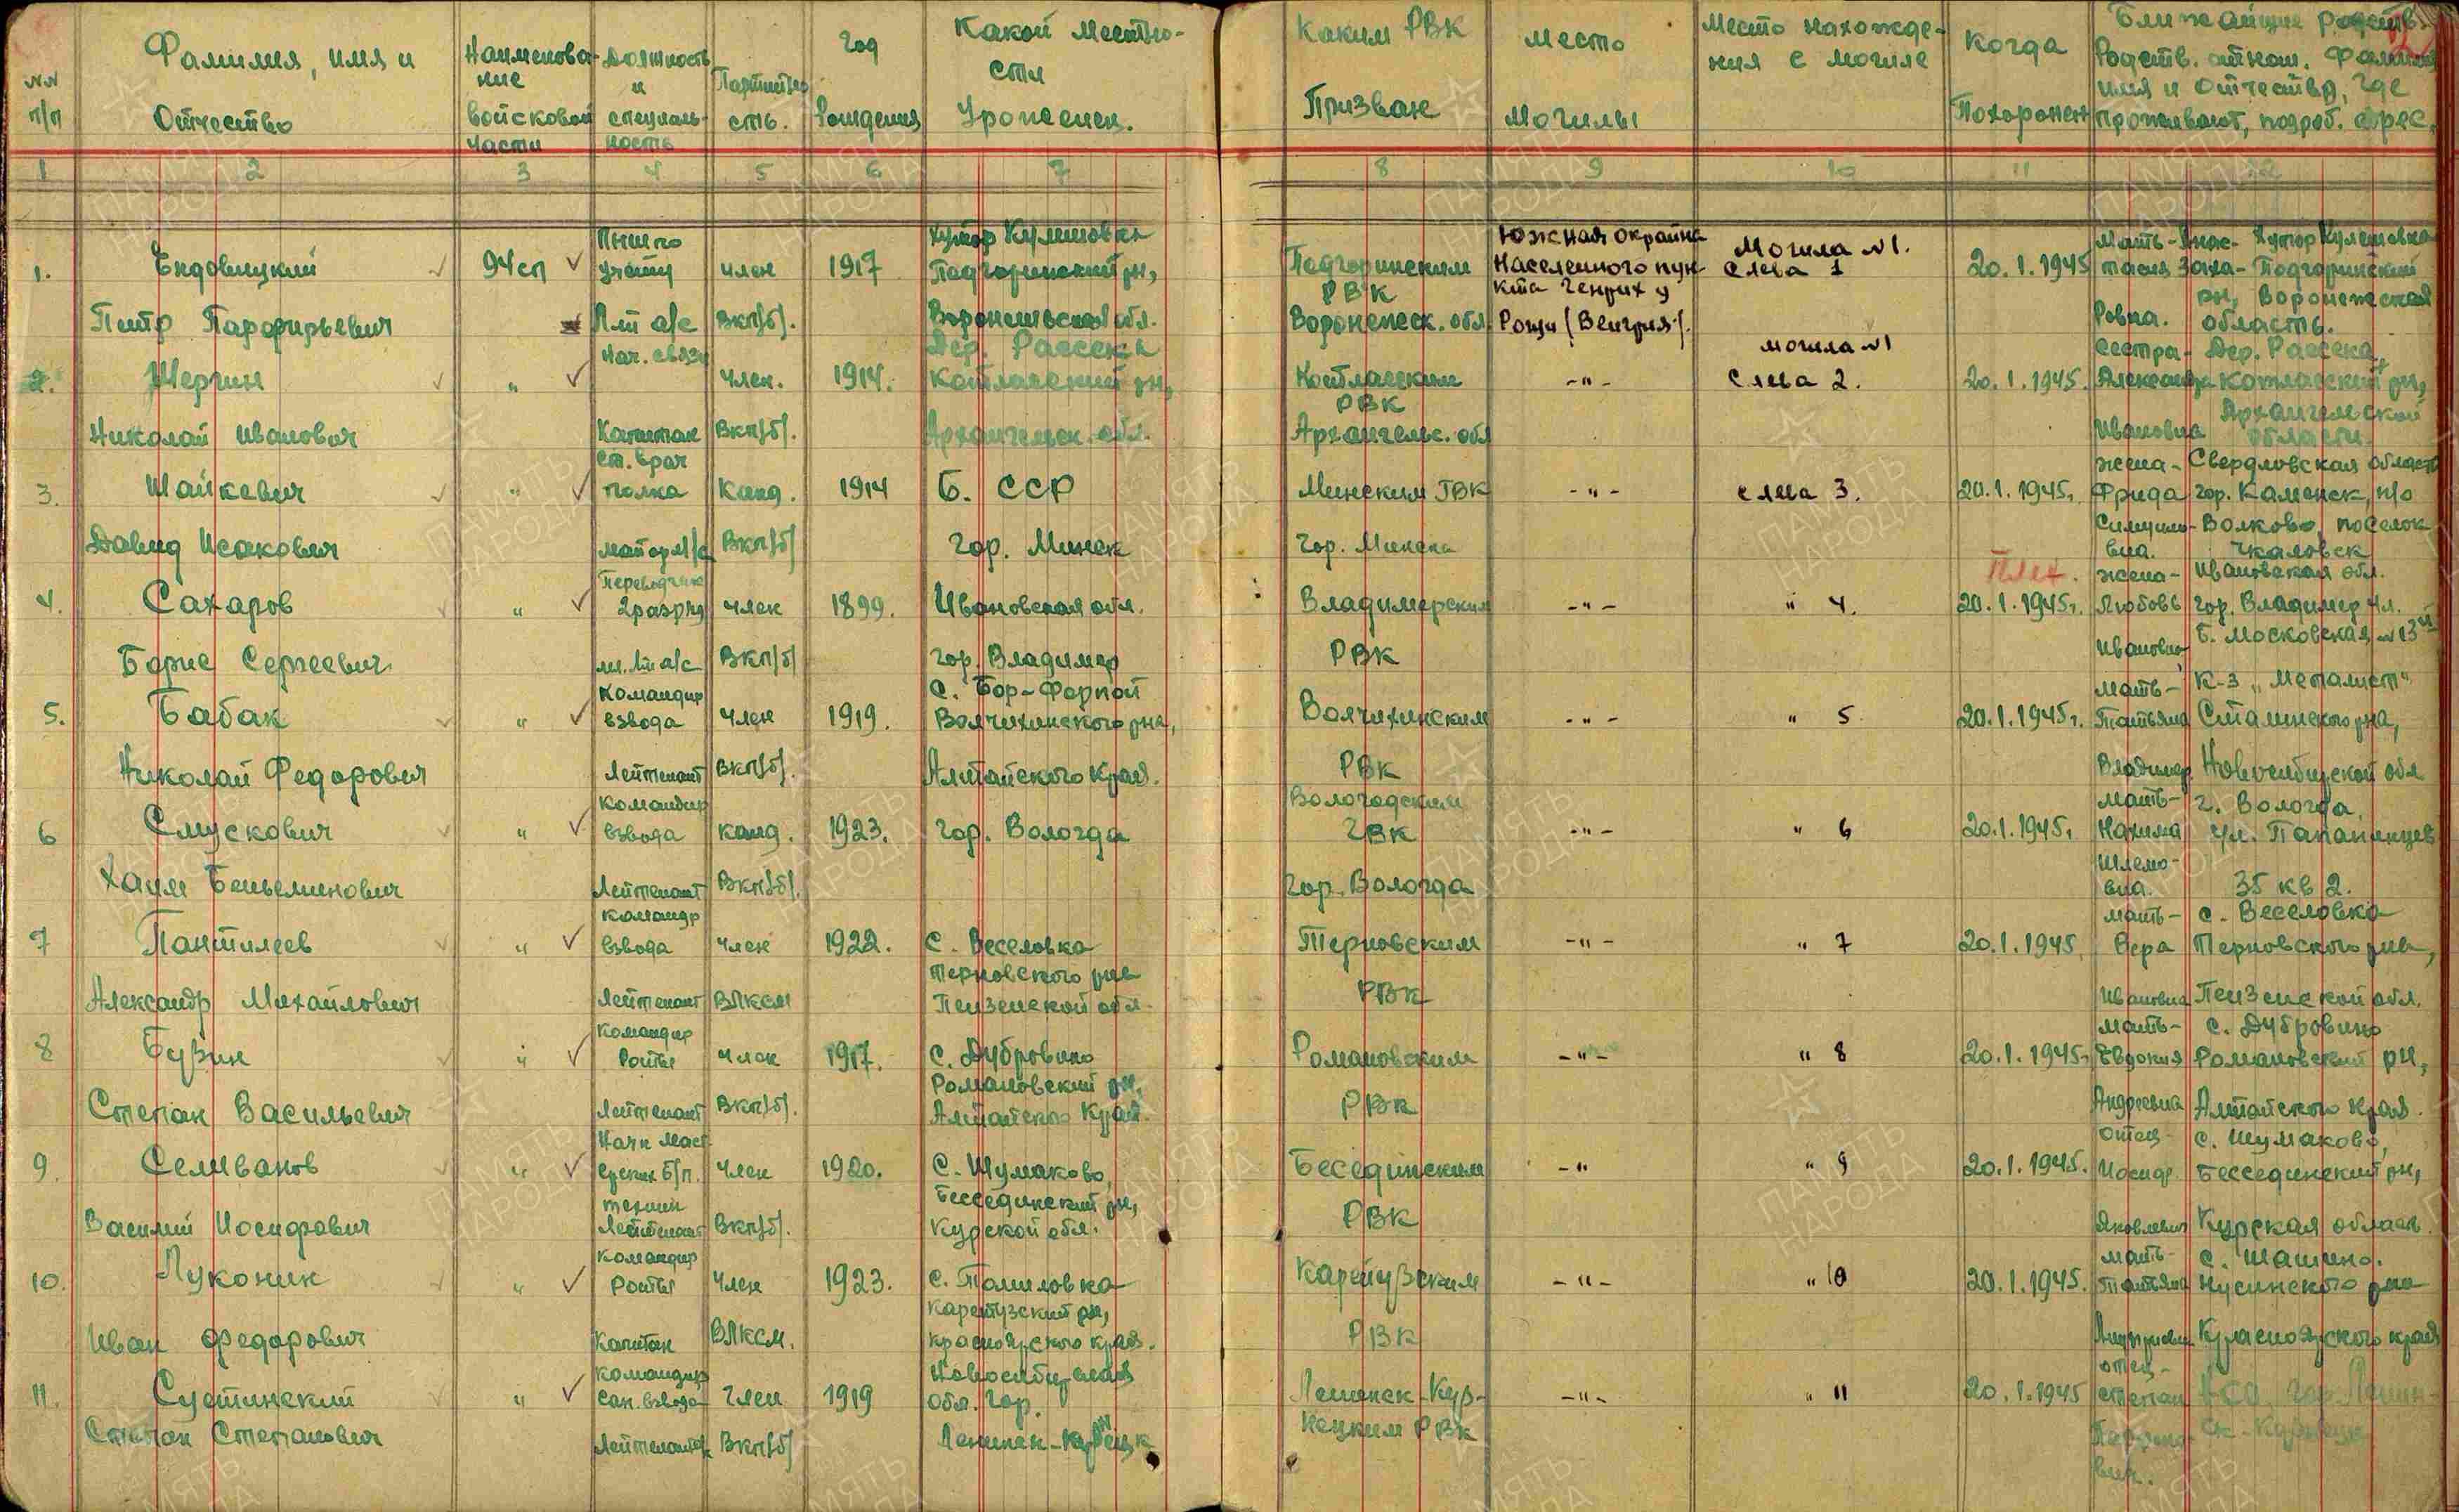 №№ п/п
Фамилия, имя и Отчество
Наименова-ние войсковой части
Должность и специаль-ность
Партийно сть.
Год Рождения
Какой местно-сти Уроженец.
Каким РВК Призван
Место Могилы
Место нахожде-ния с могиле
Когда Похоронен
Ближайшие родств. Родств. отнош. Фамилия имя и отчество, где проживают, подроб. адрес.
1 2 3 4 5 6 7 8 9 10 11 12
1. Ендовицкий Петр Парфирьевич
94 сп
Пнш по учёту Л-т а/с
член ВКП(б).
1917
хутор Кулешовка Подгоринский рн, Воронежской обл.
Подгоринским РВК Воронежск. обл
Южная окраина Населенного пун-кта Генрих у Рощи (Венгрия).
Могила №1. слева 1
20.1.1945
Мать - Анас-тасия Заха-ровна. Хутор Кулешовка Подгоринский рн, Воронежская область.
2. Шергин Николай Иванович
"
Нач. связи Капитан
член. ВКП(б).
1914.
Дер. Рассека Котласский рн, Архангельск. обл.
Котласским РВК Архангельс. обл
-"-
могила №1 слева 2.
20.1.1945.
сестра - Александра Ивановна Дер. Рассека, Котласский рн, Архангельской области.
3. Шайкевич Давид Исакович
"
Ст. врач полка майор м/с
Канд. ВКП(б)
1914
Б. ССР гор. Минск
Минским ГВК гор. Минска
-"-
слева 3.
20.1.1945г.
жена - Фрида вна. Свердловская область гор. Каменск, п/о Волково, поселок Чкаловск
4. Сахаров Борис Сергеевич
"
Переводчик 2 разряд мл. л-т а/с
член ВКП(б)
1899.
Ивановская обл. гор. Владимер
Владимерским РВК
-"-
" 4.
20.1.1945г.
жена - Любовь Ивановна Ивановская обл. гор. Владимер ул. Б. Московская №13
5. Бабак Николай Федорович
"
Командир взвода Лейтенант
член ВКП(б).
1919.
с. Бор-Форпой Волчихинского рна, Алтайского Края.
Волчихинским РВК
-"-
" 5
20.1.1945г.
мать - Татьяна Владимер К-з "Металист" Сталинского рна, Новосибирской обл
6 Смускович Хаим Беньеминович
"
Командир взвода Лейтенант
канд. ВКП(б).
1923.
гор. Вологда
Вологодским ГВК гор. Вологда
-"-
" 6
20.1.1945г.
мать - Нахима Шлемо-вна. г. Вологда, ул. Папанинцев 35 кв 2.
7 Пантилеев Александр Михайлович
"
Командр взвода Лейтенант
член ВЛКСМ
1922.
с. Веселовка Терновского рна Пензенской обл.
Терновским РВК
-"-
" 7
20.1.1945.
мать - Вера Ивановна с. Веселовка Терновского рна, Пензенской обл.
8 Бузин Степан Васильевич
"
Командир Роты Лейтенант
член ВКП(б).
1917.
с. Дубровино Романовский рн, Алтайского Края.
Романовским РВК
-"-
" 8
20.1.1945г
мать - Евдокия Андреевна с. Дубровино Романовский рн, Алтайского края.
9. Селиванов Василий Иосифович
"
Начн Мастерских б/п. техник Лейтенант
член ВКП(б).
1920.
с. Шумаково, Бесединский рн, Курской обл.
Бесединским РВК
-"
" 9
20.1.1945.
отец - Иосиф Яковлевич с. Шумаково, Бессединский рн, Курская область.
10. Луконин Иван Федорович
"
Командир роты Капитан
член ВЛКСМ.
1923.
с. Томиловка Каратузский рн, Красноярского края.
Каратузским РВК
-"-
" 10
20.1.1945.
мать - Татьяна с. Шашино. рна Красноярского края
11. Сустинский Степан Степанович
"
Командир сан. взвода Лейтенант
член ВКП(б)
1919
Новосибирская обл. гор. Ленинск-Кузнецк
Ленинск-Куз-нецким РВК
-"-
" 11
20.1.1945
отец - Степан НСО, гор. Ленин-ск-Кузнецк
ПАМЯТЬ НАРОДА